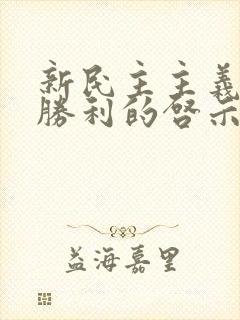 新民主主義
勝利的啓示
益海嘉里